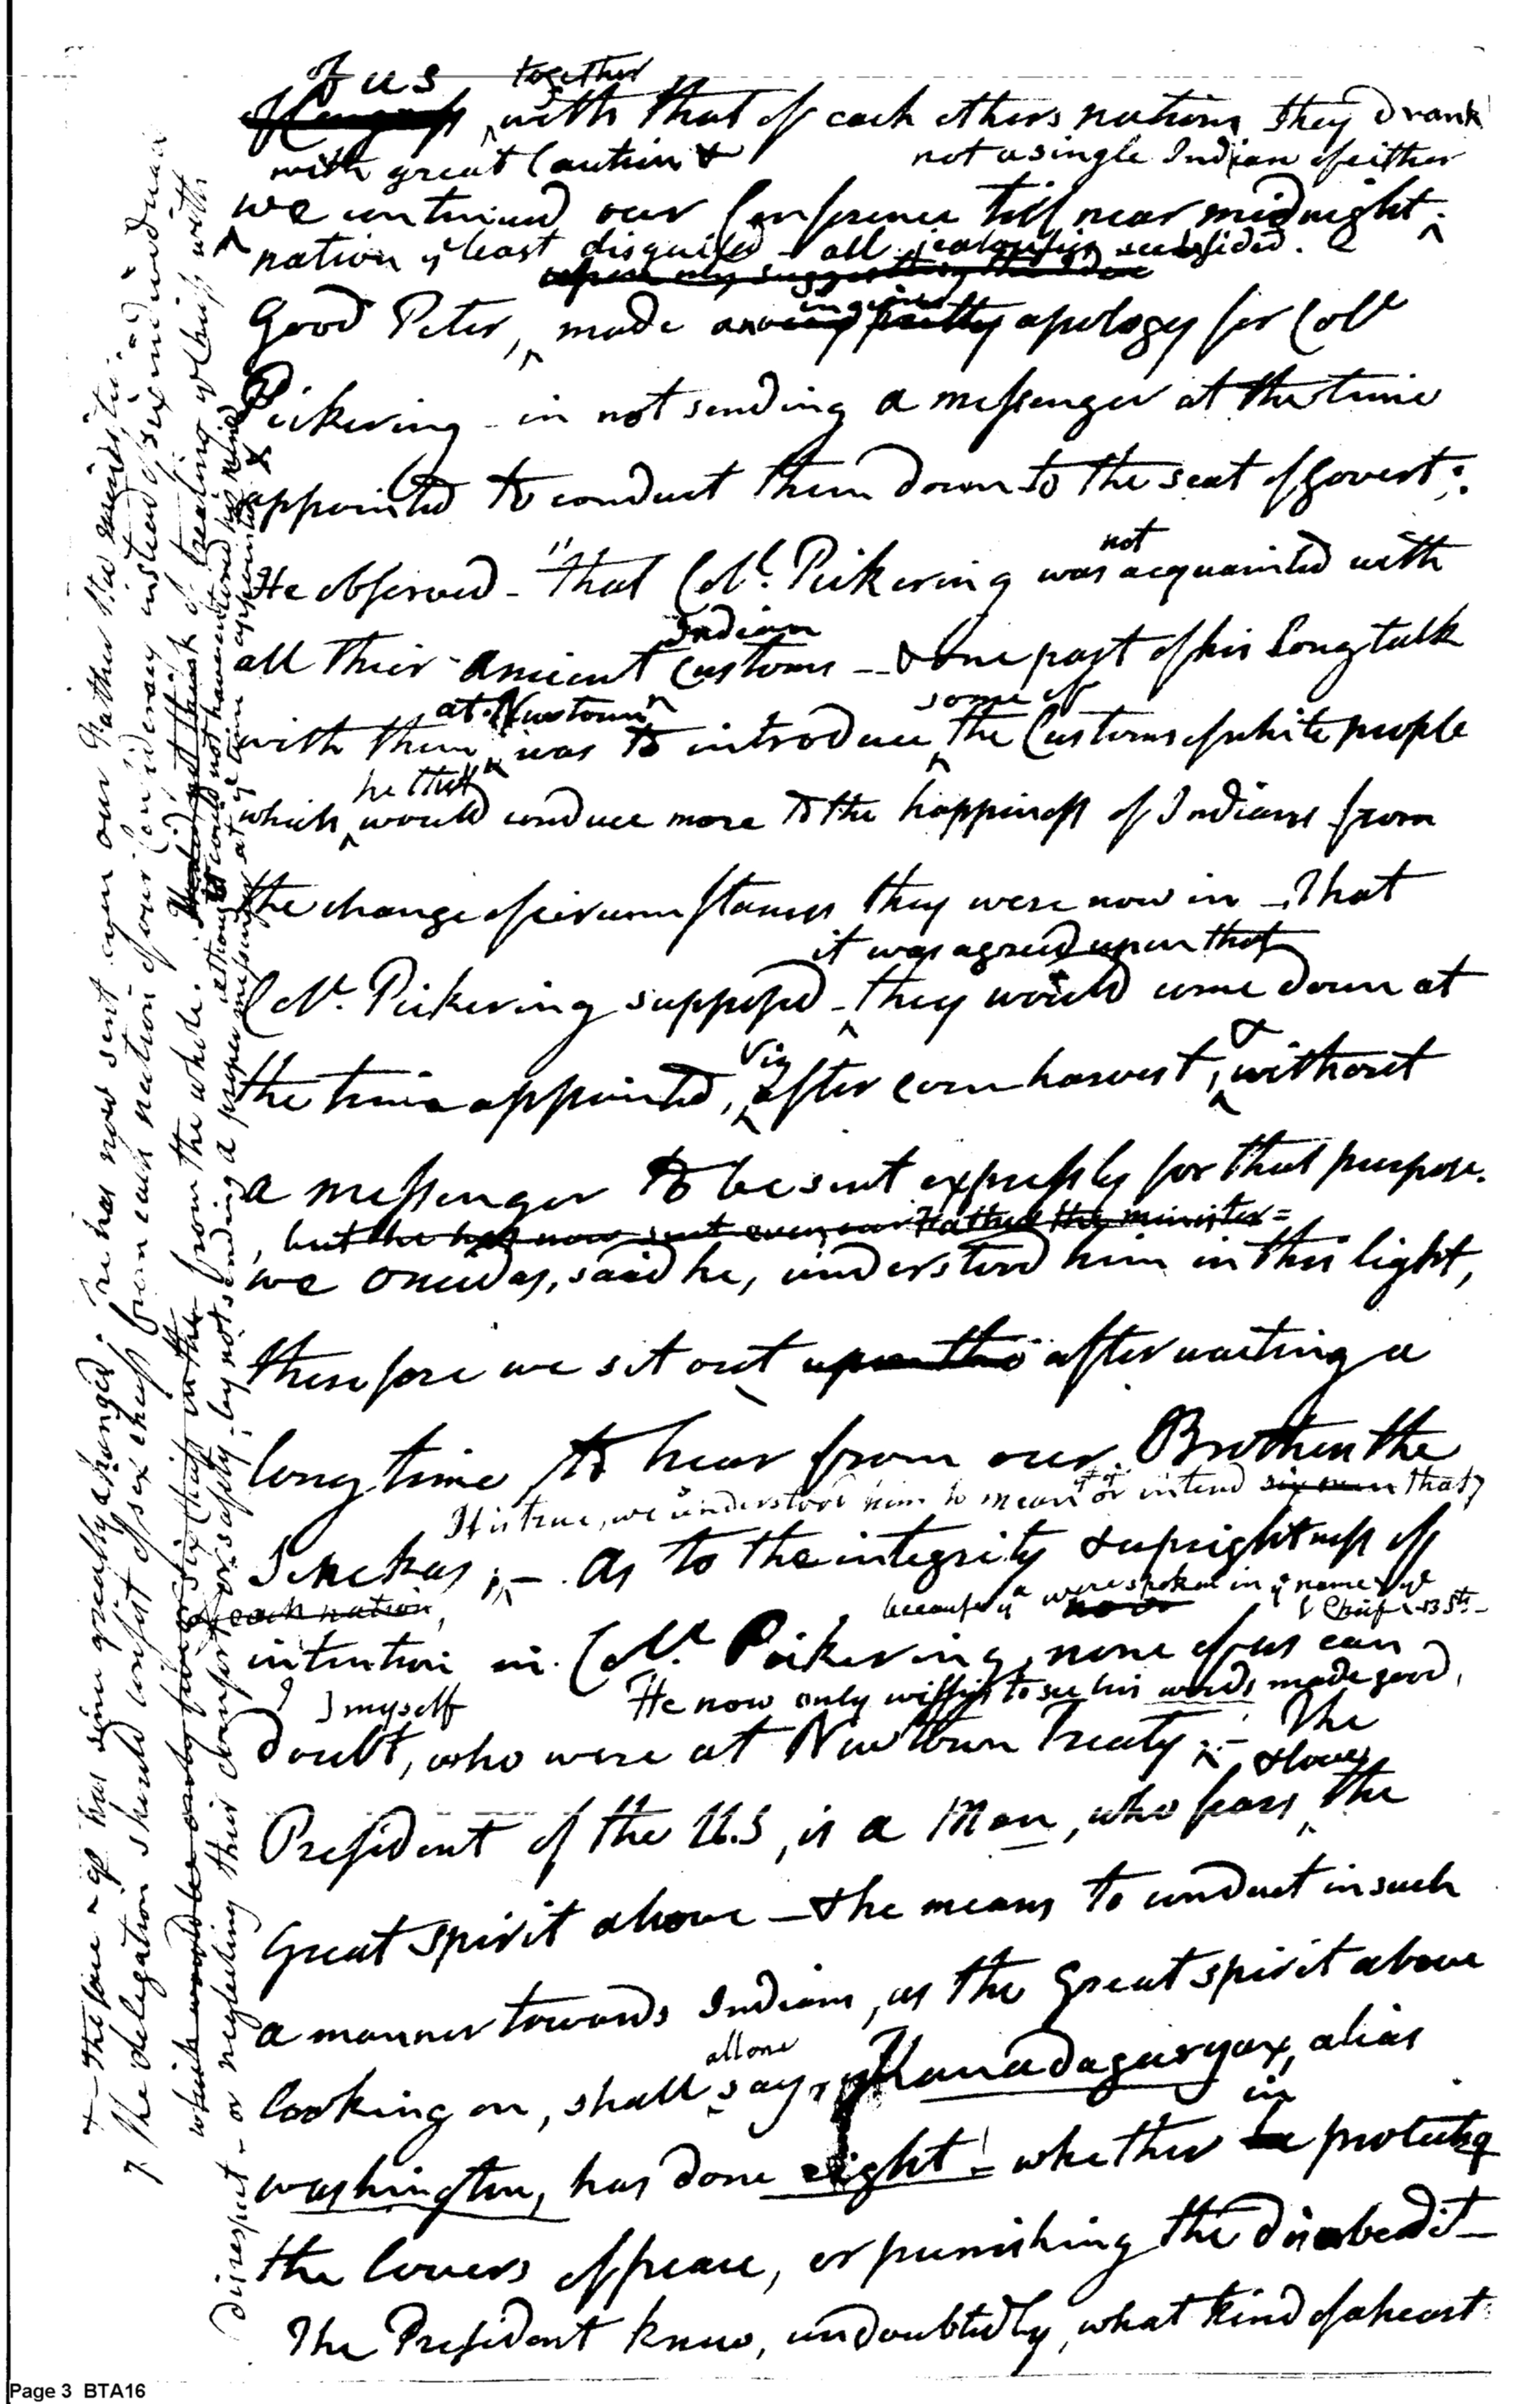 of us together
with that of each others nations they Drank
with great Caution & not a single Indian of either
we continued our Conference till near midnight.
nation ye least disguised - all jealousies subsided.
upon my suggesting the idea
Good Peter, made apology for Colo
Pickering - in not sending a messenger at the time
appointed to conduct them down to the seat of Govert:.
not
He observed - "that Col. Pickering was acquainted with
Indian
all their ancient Customs - & one part of his Long talk
at Newtown some of
with them was to introduce the Customs of white people
he tht
which would conduce more to the happiness of Indians from
the change of circumstances they were now in - That
it was agreed upon that
Colo. Pickering supposed - they would come down at
viz &
the time appointed, after corn harvest, without
a messenger to be sent expressly for that purpose.
, but he has now sent even our Father the minister =
we Oneidas, said he, understood him in this light,
therefore we set out upon the after waiting a
long time to hear from our Brothers the
It is true, we understood him to mean or intend six men that
Senekas ;- As to the integrity & uprightness of
of each nation, because ye were spoken in ye name & ye
intention in Colo. Pickering, none of us can
I myself He now only wishes to see his words made good,
doubt, who were at Newtown Treaty :- The
& loves
President of the U.S, is a Man, who fears the
Great Spirit above - & he means to conduct in such
a manner towards Indians, as the Great spirit above
looking on, shall say, Hanadagasyax, alias
in
Washington, has done right - whether protecting
the lovers of peace, or punishing the disobedit-
The President knew, undoubtedly, what kind of a heart
- The case - has since greatly changed; he has now sent even our Father the minister,
The delegation should consist of six chiefs from each nation of our Confideracy instead of
which would be only from the whole.
disrespect - or neglecting their comfort or safety, by not sending a proper messenger at ye time appointed